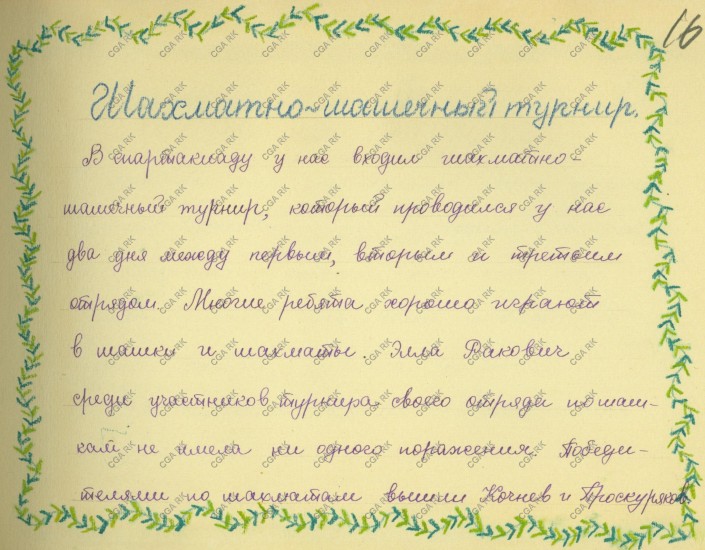 16
Шахматно-шашечный турнир.
В спартакиаду у нас входил шахматно-
шашечный турнир, который проводился у нас
два дня между первым, вторым и третьим
отрядом. Многие ребята хорошо играют
в шашки и шахматы. Элла Ракович
среди участников турнира своего отряда по шаш-
кам не имела ни одного поражения. Победи-
телями по шахматам вышли Кочнев и Проскуряков.
CGA RK